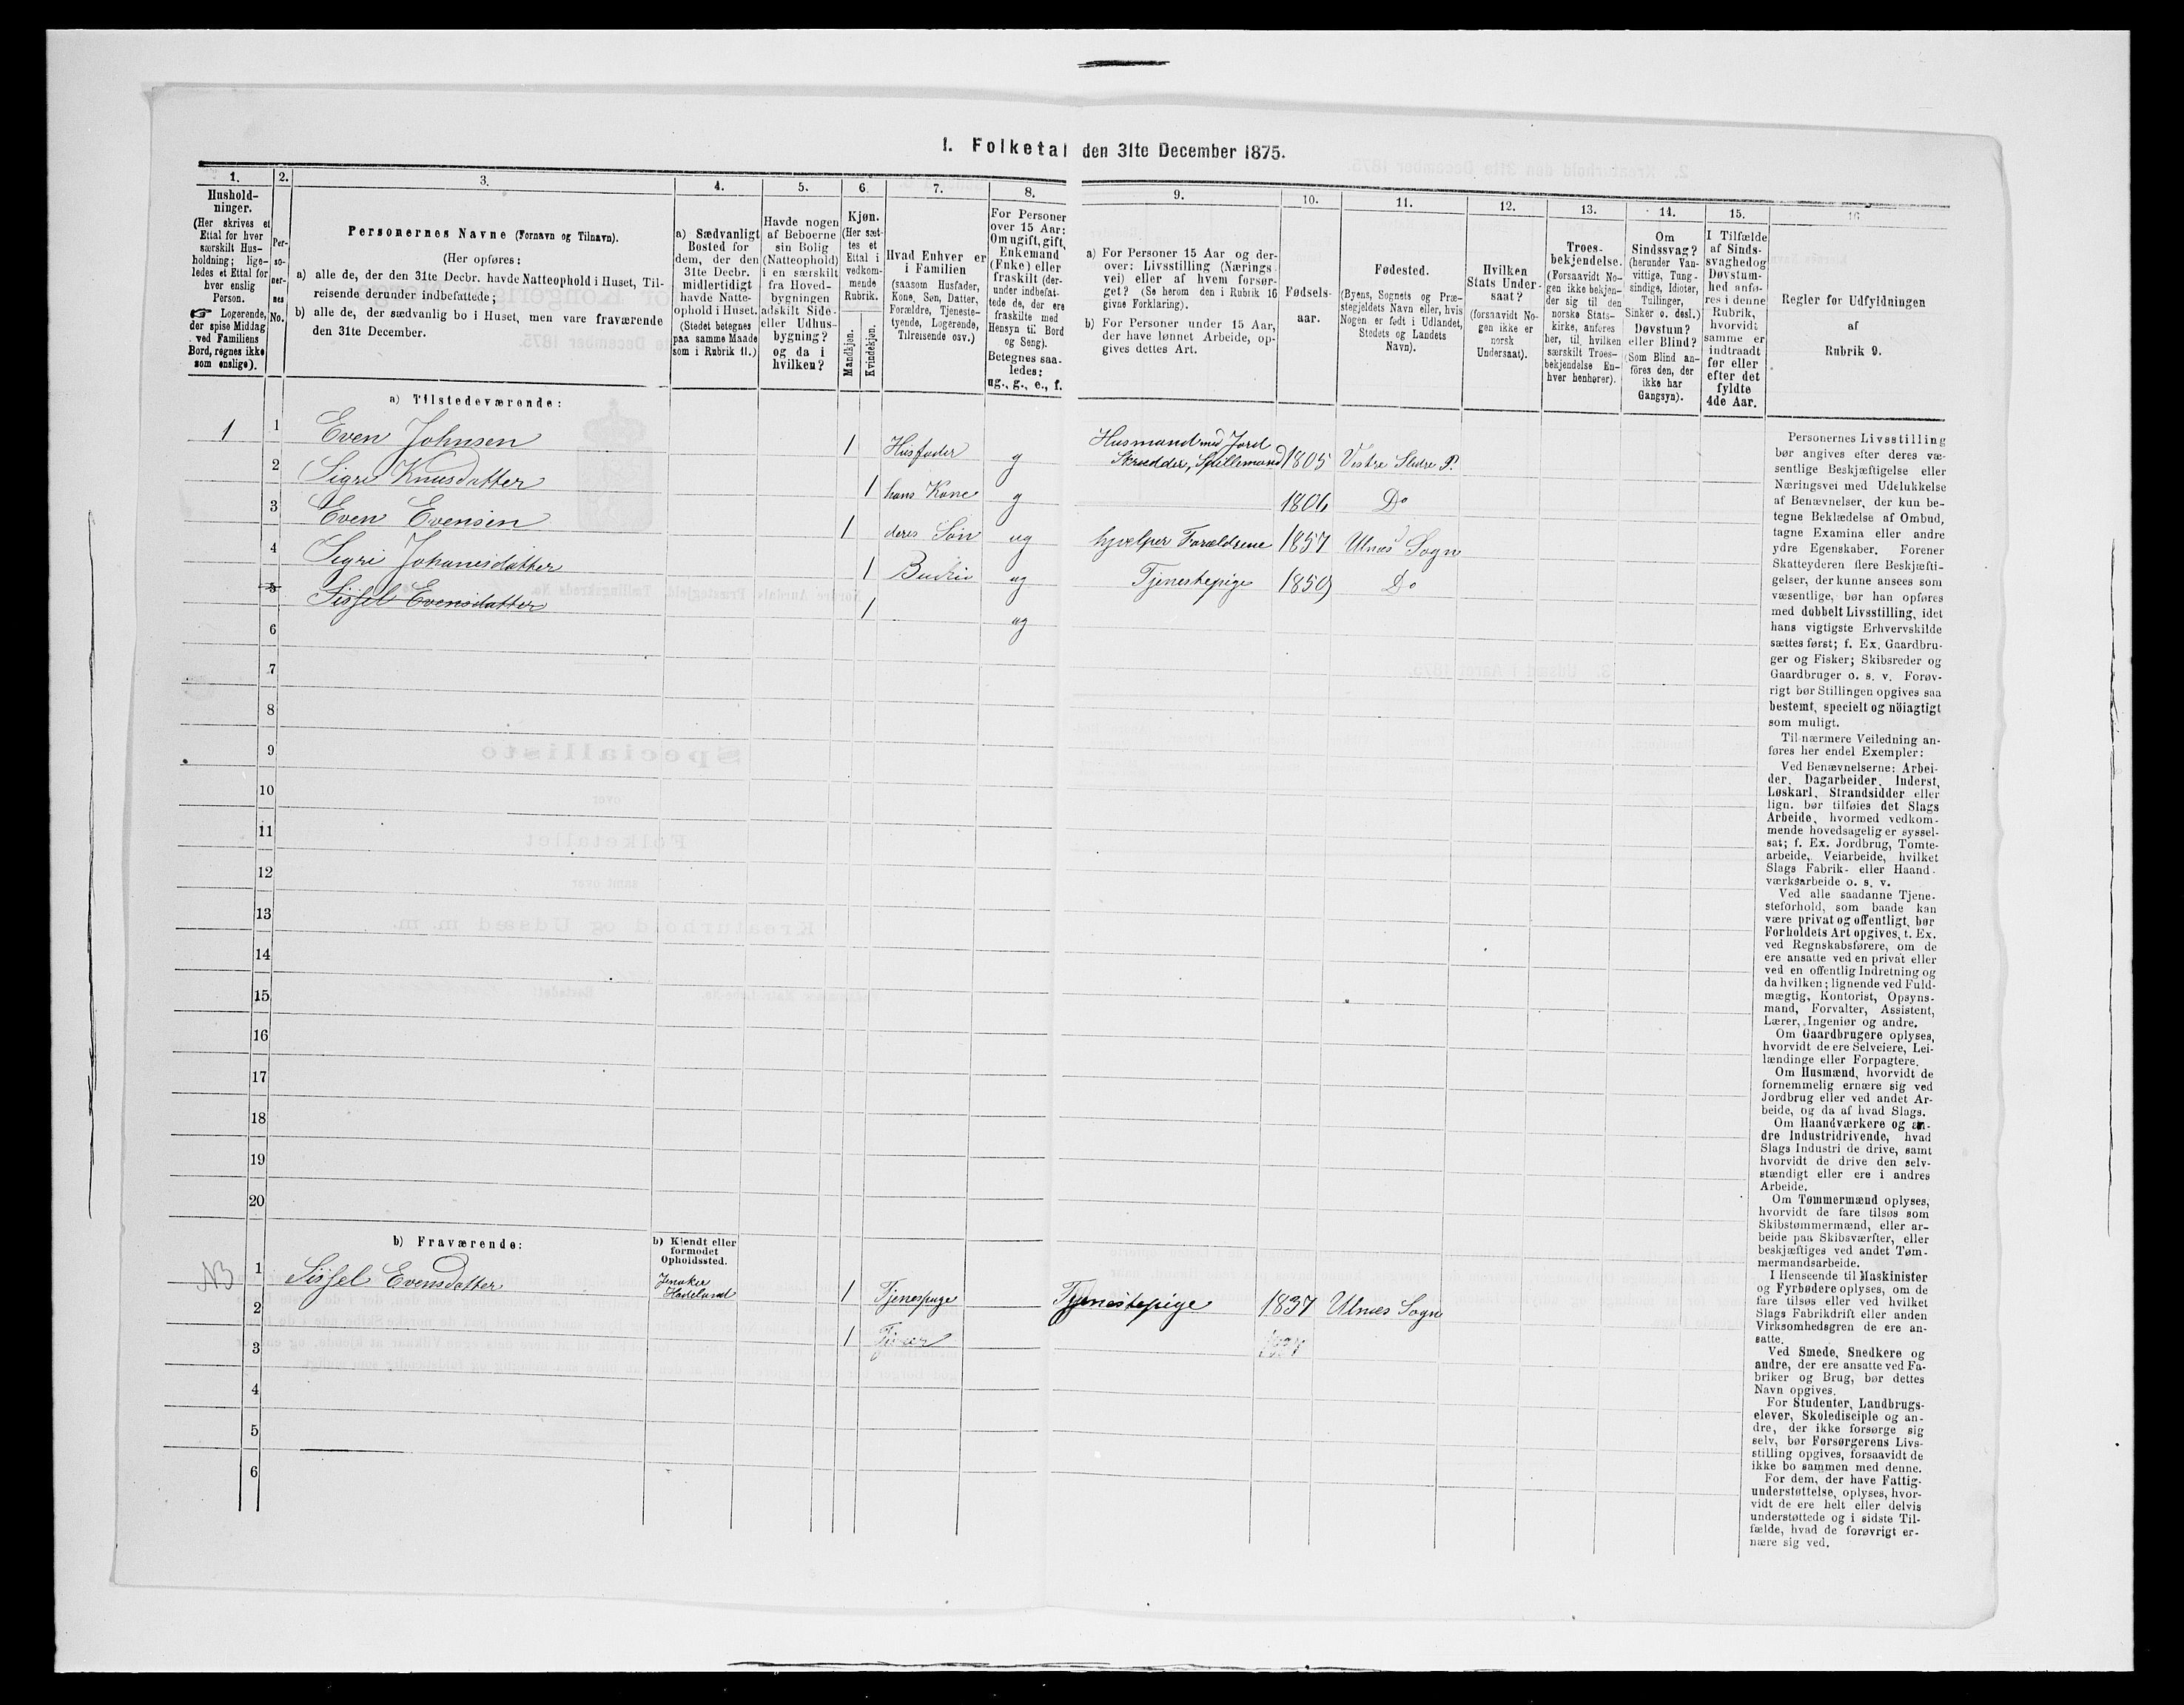 I. Folketal den 31te December 1875.
1.
Hushold-
ninger.
(Her skrives et
Ettal for hver
særskilt Hus-
holdning; lige-
ledes et Ettal for
hver enslig
Person.
☞ Logerende,
der spise Middag
ved Familiens
Bord, regnes ikke
som enslige).
2.
Per-
so-
ner-
nes
No.
3.
Personernes Navne (Fornavn og Tilnavn).
(Her opføres:
a) alle de, der den 31te Decbr. havde Natteophold i Huset, Til-
reisende derunder indbefattede;
b) alle de, der sædvanlig bo i Huset, men vare fraværende
den 31te December.
4.
a) Sædvanligt
Bosted for
dem, der den
31te Decbr.
midlertidigt
havde Natte-
ophold i Huset.
(Stedet betegnes
paa samme Maade
som i Rubrik 11.)
5.
Havde nogen
af Beboerne
sin Bolig
(Natteophold)
i en særskilt
fra Hoved-
bygningen
adskilt Side-
eller Udhus-
bygning?
og da i
hvilken?
6.
Kjøn.
(Her sæt-
tes et
Ettal i
vedkom-
mende
Rubrik.
Mandkjøn.
Kvindekjøn.
7.
Hvad Enhver er
i Familien
(saasom Husfader,
Kone, Søn, Datter,
Forældre, Tjeneste-
tyende, Logerende,
Tilreisende osv.)
8.
For Personer
over 15 Aar:
Om ugift, gift,
Enkemand
(Enke) eller
fraskilt (der-
under indbefat-
tede de, der ere
fraskilte med
Hensyn til Bord
og Seng).
Betegnes saa-
ledes:
ug., g., e., f.
9.
a) For Personer 15 Aar og der-
over: Livsstilling (Nærings-
vei) eller af hvem forsør-
get? (Se herom den i Rubrik 16
givne Forklaring).
b) For Personer under 15 Aar,
der have lønnet Arbeide, op-
gives dettes Art.
10.
Fødsels-
aar.
11.
Fødested.
(Byens, Sognets og Præ-
stegjeldets Navn eller, hvis
Nogen er født i Udlandet,
Stedets og Landets
Navn).
12.
Hvilken
Stats Under-
saat?
(forsaavidt No-
gen ikke er
norsk
Undersaat).
13.
Troes-
bekjendelse.
(Forsaavidt No-
gen ikke bekjen-
der sig til den
norske Stats-
kirke, anføres
her, til hvilken
særskilt Troes-
bekjendelse En-
hver henhører).
14.
Om
Sindssvag?
(herunder Van-
vittige, Tung-
sindige, Idioter,
Tullinger,
Sinker o. desl.)
Døvstum?
eller Blind?
(Som Blind an-
føres den, der
ikke har
Gangsyn).
15.
I Tilfælde
af Sinds-
svaghed og
Døvstum-
hed anfø-
res i denne
Rubrik,
hvorvidt
samme er
indtraadt
før eller
efter det
fyldte
4de Aar.
16
Regler for Udfyldningen
af
Rubrik 9.
a) Tilstedeværende:
1 1 Even Johnsen 1 Husfader g Husmand med Jord Skrædder, Spillemand 1805 Vestre Slidre P.
2 Sigri Knudsdatter 1 hans Kone g 1806 Do
3 Even Evensen 1 deres Søn ug hjælper Forældrene 1857 Ulnæs Sogn
4 Sigri Johanisdatter 1 Budeie ug Tjenestepige 1859 Do
5 Sissel Evensdatter 1 ug
6
7
8
9
10
11
12
13
14
15
16
17
18
19
20
b) Fraværende:
b) Kjendt eller
formodet
Opholdssted.
NB 1 Sissel Evensdatter Jevnaker Hadeland 1 Tjenespige Tjenestepige 1837 Ulnæs Sogn
2 1 1837
3
4
5
6
Personernes Livsstilling
bør angives efter deres væ-
sentlige Beskjæftigelse eller
Næringsvei med Udelukkelse
af Benævnelser, der kun be-
tegne Beklædelse af Ombud,
tagne Examina eller andre
ydre Egenskaber. Forener
Skatteyderen flere Beskjæfti-
gelser, der kunne ansees som
væsentlige, bør han opføres
med dobbelt Livsstilling, idet
hans vigtigste Erhvervskilde
sættes først; f. Ex. Gaardbru-
ger og Fisker; Skibsreder og
Gaardbruger o. s. v. Forøv-
rigt bør Stillingen opgives saa
bestemt, specielt og nöiagtigt
som muligt.
Til nærmere Veiledning an-
føres her endel Exempler:
Ved Benævnelserne: Arbei-
der, Dagarbeider, Inderst,
Løskarl, Strandsidder eller
lign. bør tilføies det Slags
Arbeide, hvormed vedkom-
mende hovedsagelig er syssel-
sat; f. Ex. Jordbrug, Tomte-
arbeide, Veiarbeide, hvilket
Slags Fabrik- eller Haand-
værksarbeide o. s. v.
Ved alle saadanne Tjene-
steforhold, som baade kan
være privat og offentligt, bør
Forholdets Art opgives, t. Ex.
ved Regnskabsførere, om de
ere ansatte ved en privat eller
ved en offentlig Indretning og
da hvilken; lignende ved Fuld-
mægtig, Kontorist, Opsyns-
mand, Forvalter, Assistent,
Lærer, Ingeniør og andre.
Om Gaardbrugere oplyses,
hvorvidt de ere Selveiere, Lei-
lændinge eller Forpagtere.
Om Husmænd, hvorvidt de
fornemmelig ernære sig ved
Jordbrug eller ved andet Ar-
beide, og da af hvad Slags.
Om Haandværkere og an-
dre Industridrivende, hvad
Slags Industri de drive, samt
hvorvidt de drive den selv-
stændigt eller ere i andres
Arbeide.
Om Tømmermænd oplyses,
hvorvidt de fare tilsøs som
Skibstømmermænd, eller ar-
beide paa Skibsværfter, eller
beskjæftiges ved andet Tøm-
mermandsarbeide.
I Henseende til Maskinister
og Fyrbødere oplyses, om de
fare tilsøs eller ved hvilket
Slags Fabrikdrift eller anden
Virksomhedsgren de ere an-
satte.
Ved Smede, Snedkere og
andre, der ere ansatte ved Fa-
briker og Brug, bør dettes
Navn opgives.
For Studenter, Landbrugs-
elever, Skoledisciple og an-
dre, der ikke forsørge sig
selv, bør Forsørgerens Livs-
stilling opgives, forsaavidt de
ikke bo sammen med denne.
For dem, der have Fattig-
understøttelse, oplyses, hvor-
vidt de ere helt eller delvis
understøttede og i sidste Til-
fælde, hvad de forøvrigt er-
nære sig ved.